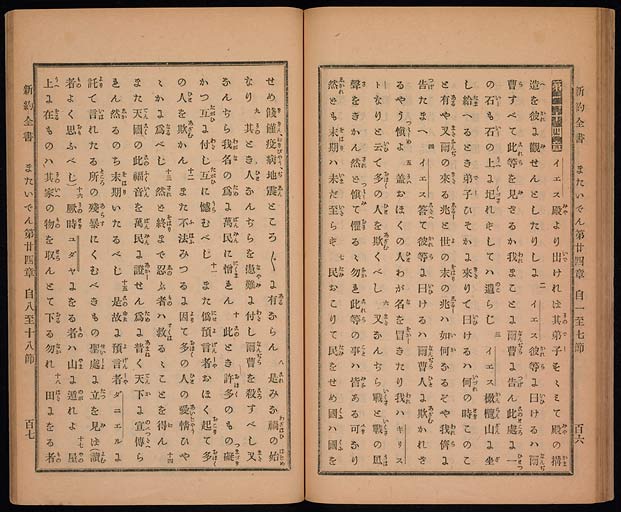 新約全書 またいでん第廿四章 自一至七節 百六
第二十四章 一 イエス殿より出ければ其弟子すゝみて殿の搆
造を彼よ觀せんとしたりしよ 二 イエス彼等よ曰けるハ爾
曹すべて此等を見ざるか我まことよ爾曹よ告ん此處よ一
の石も石の上よ圮れずしてハ遺らじ 三 イエス橄欖山よ坐
し給へるとき弟子ひそかよ來りて曰けるハ何の時このこ
と有や又爾の來る兆と世の末の兆ハ如何なるぞや我儕よ
告たまへ 四 イエス答て彼等よ曰けるハ爾曹人よ欺かれざ
るやう愼よ 五 蓋おほくの人わが名を冒きたり我ハキリス
トなりと云て多くの人を欺くべし 六 又なんぢら戰と戰の風
聲をきかん然ど愼て懼るゝ勿れ此等の事ハ皆ある可なり
然ども末期ハ未だ至らず 七 民おこりて民をせめ國ハ國を
せめ饑饉疫病地震ところ〴〵よ有ならん 八 是みな禍の始
なり 九 其とき人なんぢらを患難よ付し爾曹を殺すべし又
なんぢら我名の爲よ萬民よ憎れん 十 此とき許多のもの礙
かつ互よ付し互よ憾むべし 十一 また僞預言者おほく起て多く
の人を欺かん 十二 また不法みつるよ因て多の人の愛情ひや
ゝかよ爲べし 十三 然ど終まで忍ぶ者ハ救るゝことを得ん 十四
また天國の此福音を萬民よ證せん爲よ普く天下よ宣傳ら
れん然るのち末期いたるべし 十五 是故よ預言者ダニエルよ
託て言れたる所の殘暴にくむべきもの聖處よ立を見ば（讀
者よく思ふべし） 十六 厥時ユダヤよをる者ハ山よ遁れよ 十七 屋
上よ在ものハ其家の物を取んとて下る勿れ 十八 田よをる者
新約全書 またいでん第廿四章 自八至十八節 百七